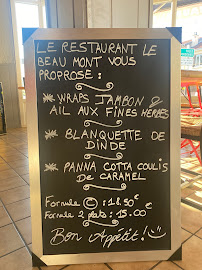 LE RESTAURANT LE
BEAU MONT VOUS
PROPROSE :
WRAPS JAMBON &
AIL AUX FINES HERBES
BLANQUETTE DE
DINDE
PANNA COTTA COULIS
DE CARAMEL
Formule C : 18.50 €
Formule 2 plats : 15.00
Bon Appétit !